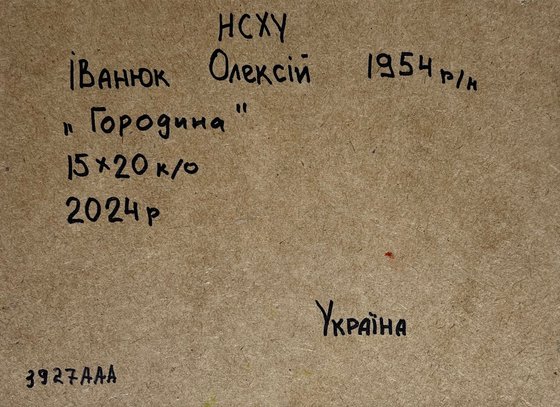 НСХУ
Іванюк Олексій 1954 г/н
„Городина"
15х20 к/о
2024 р
Україна
3927ААА